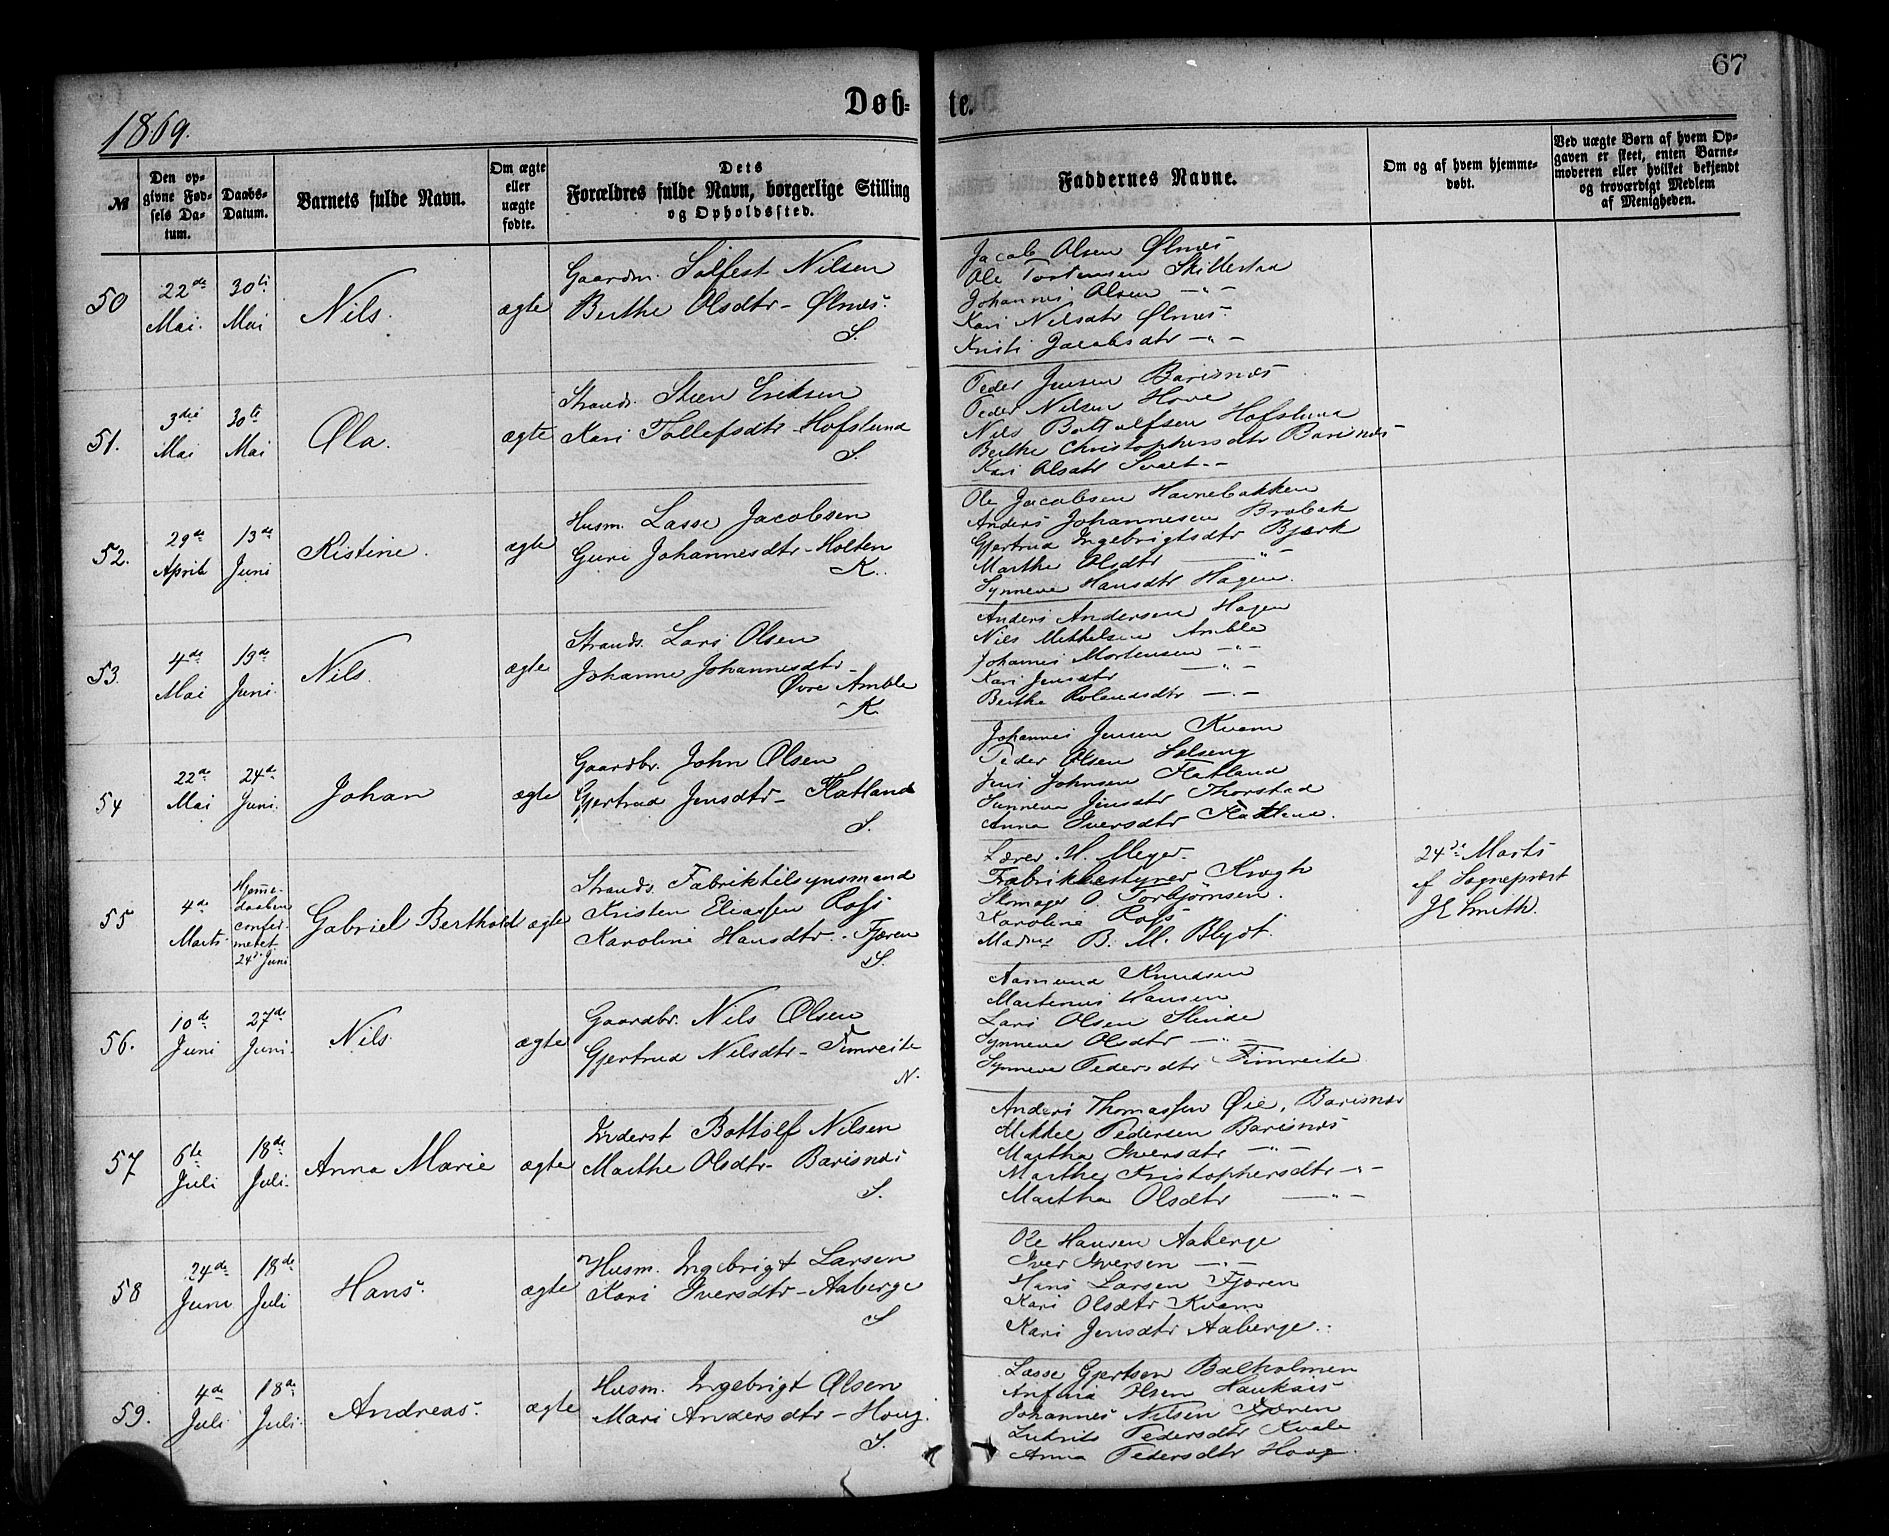 67
Døb-
te.
1869.
№
Den op-
givne Fød-
sels Da-
tum.
Daabs-
Datum.
Barnets fulde Navn.
Om ægte
eller
uægte
fødte.
Dets
Forældres fulde Navn, borgerlige Stilling
og Opholdssted.
Faddernes Navne.
Om og af hvem hjemme-
døbt.
Ved uægte Børn af hvem Op-
gaven er skeet, enten Barne-
moderen eller hvilket bekjendt
og troværdigt Medlem
af Menigheden.
50
22de
Mai.
30te
Mai
Nils.
ægte
Gaardm. Solfest Nilsen
Berthe Olsdtr - Ølnæs.
S.
Jacob Olsen Ølnæs
Ole Torstensen Skillestad
Johannes Olsen - " -
Kari Nilsdtr Ølnæs.
Kristi Jacobsdtr - " -
51.
3die
Mai
30te
Mai
Ola.
ægte
Strands. Steen Eriksen
Kari Tollefsdtr - Hofslund
S.
Peder Jensen Barsnæs
Peder Nilsen Hove
Nils Bottolfsen Hofslund
Berthe Christophersdtr Barsnæs
Kari Olsdtr
52.
29de
April
13de
Juni
Kistine.
ægte
Husm. Lasse Jacobsen
Guri Johannesdtr - Holten
K.
Ole Jacobsen Havnebakken
Anders Johannesen Brøbak
Gjertrud Ingebrigtsdtr Bjørk
Marthe Olsdtr - " -
Synneve Hansdtr Hagen.
53.
4de
Mai
13de
Juni.
Nils.
ægte
Strands. Lars Olsen
Johanne Johannesdtr -
Øvre Amble
K.
Anders Andersen Hagen
Nils Mikkelsen Amble
Johannes Mortensen - " -
Kari Jensdtr - " -
Berthe Rolandsdtr - " -
54
22de
Mai
24de
Juni.
Johan
ægte
Gaardbr. John Olsen
Gjertrud Jensdtr - Flatland
S.
Johannes Jensen Kvam
Peder Olsen Selseng
Jens Johnsen Flatland
Sunneva Jensdtr Thorstad
Anna Iversdtr
55
4de
Marts
Hjemme-
daaben
confir-
meret
24de Juni
Gabriel Berthold
ægte
Strands. Fabriktilsynsmand
Kristen Eliassen Ross
Karoline Hansdtr. - Fjæren
S.
Lærer H. Meyer.
Fabrikbestyrer Krogh
Skomager O. Torbjørnsen.
Karoline Ross
Madme B. M. Blydt.
24de Marts
af Sogneprest
J E Smith.
56.
10de
Juni
27de
Juni.
Nils.
ægte
Gaardbr. Nils Olsen
Gjertrud Nilsdtr - Fimreite
N.
Aamund Knudsen
Martinus Hansen
Lars Olsen Slinde
Synneve Olsdtr - " -
Synneve Pedersdtr Fimreite
57
6te
Juli
18de
Juli.
Anna Marie
ægte
Inderst Bottolf Nilsen
Marthe Olsdtr - Barsnæs
S.
Anders Thomassen Øie, Barsnæs
Mikkel Pedersen Barsnæs
Martha Iversdtr - " -
Marthe Kristophersdtr - " -
Martha Olsdtr - " -
58
24de
Juni
18de
Juli
Hans.
ægte
Husm. Ingebrigt Larsen
Kari Iversdtr - Aaberge
S
Ole Hansen Aaberge
Iver Iversen - " -
Hans Larsen Fjæren
Kari Olsdtr Kvam
Kari Jensdtr Aaberge.
59.
4de
Juli
18de
Juli.
Andreas.
ægte
Husm. Ingebrigt Olsen
Mari Andersdtr - Houg.
S.
Lasse Gjertsen Bælholmen
Anfind Olsen Haukaas
Johannes Nilsen Fjæren
Pedersdtr Kvale
Anna Pedersdtr Houg.